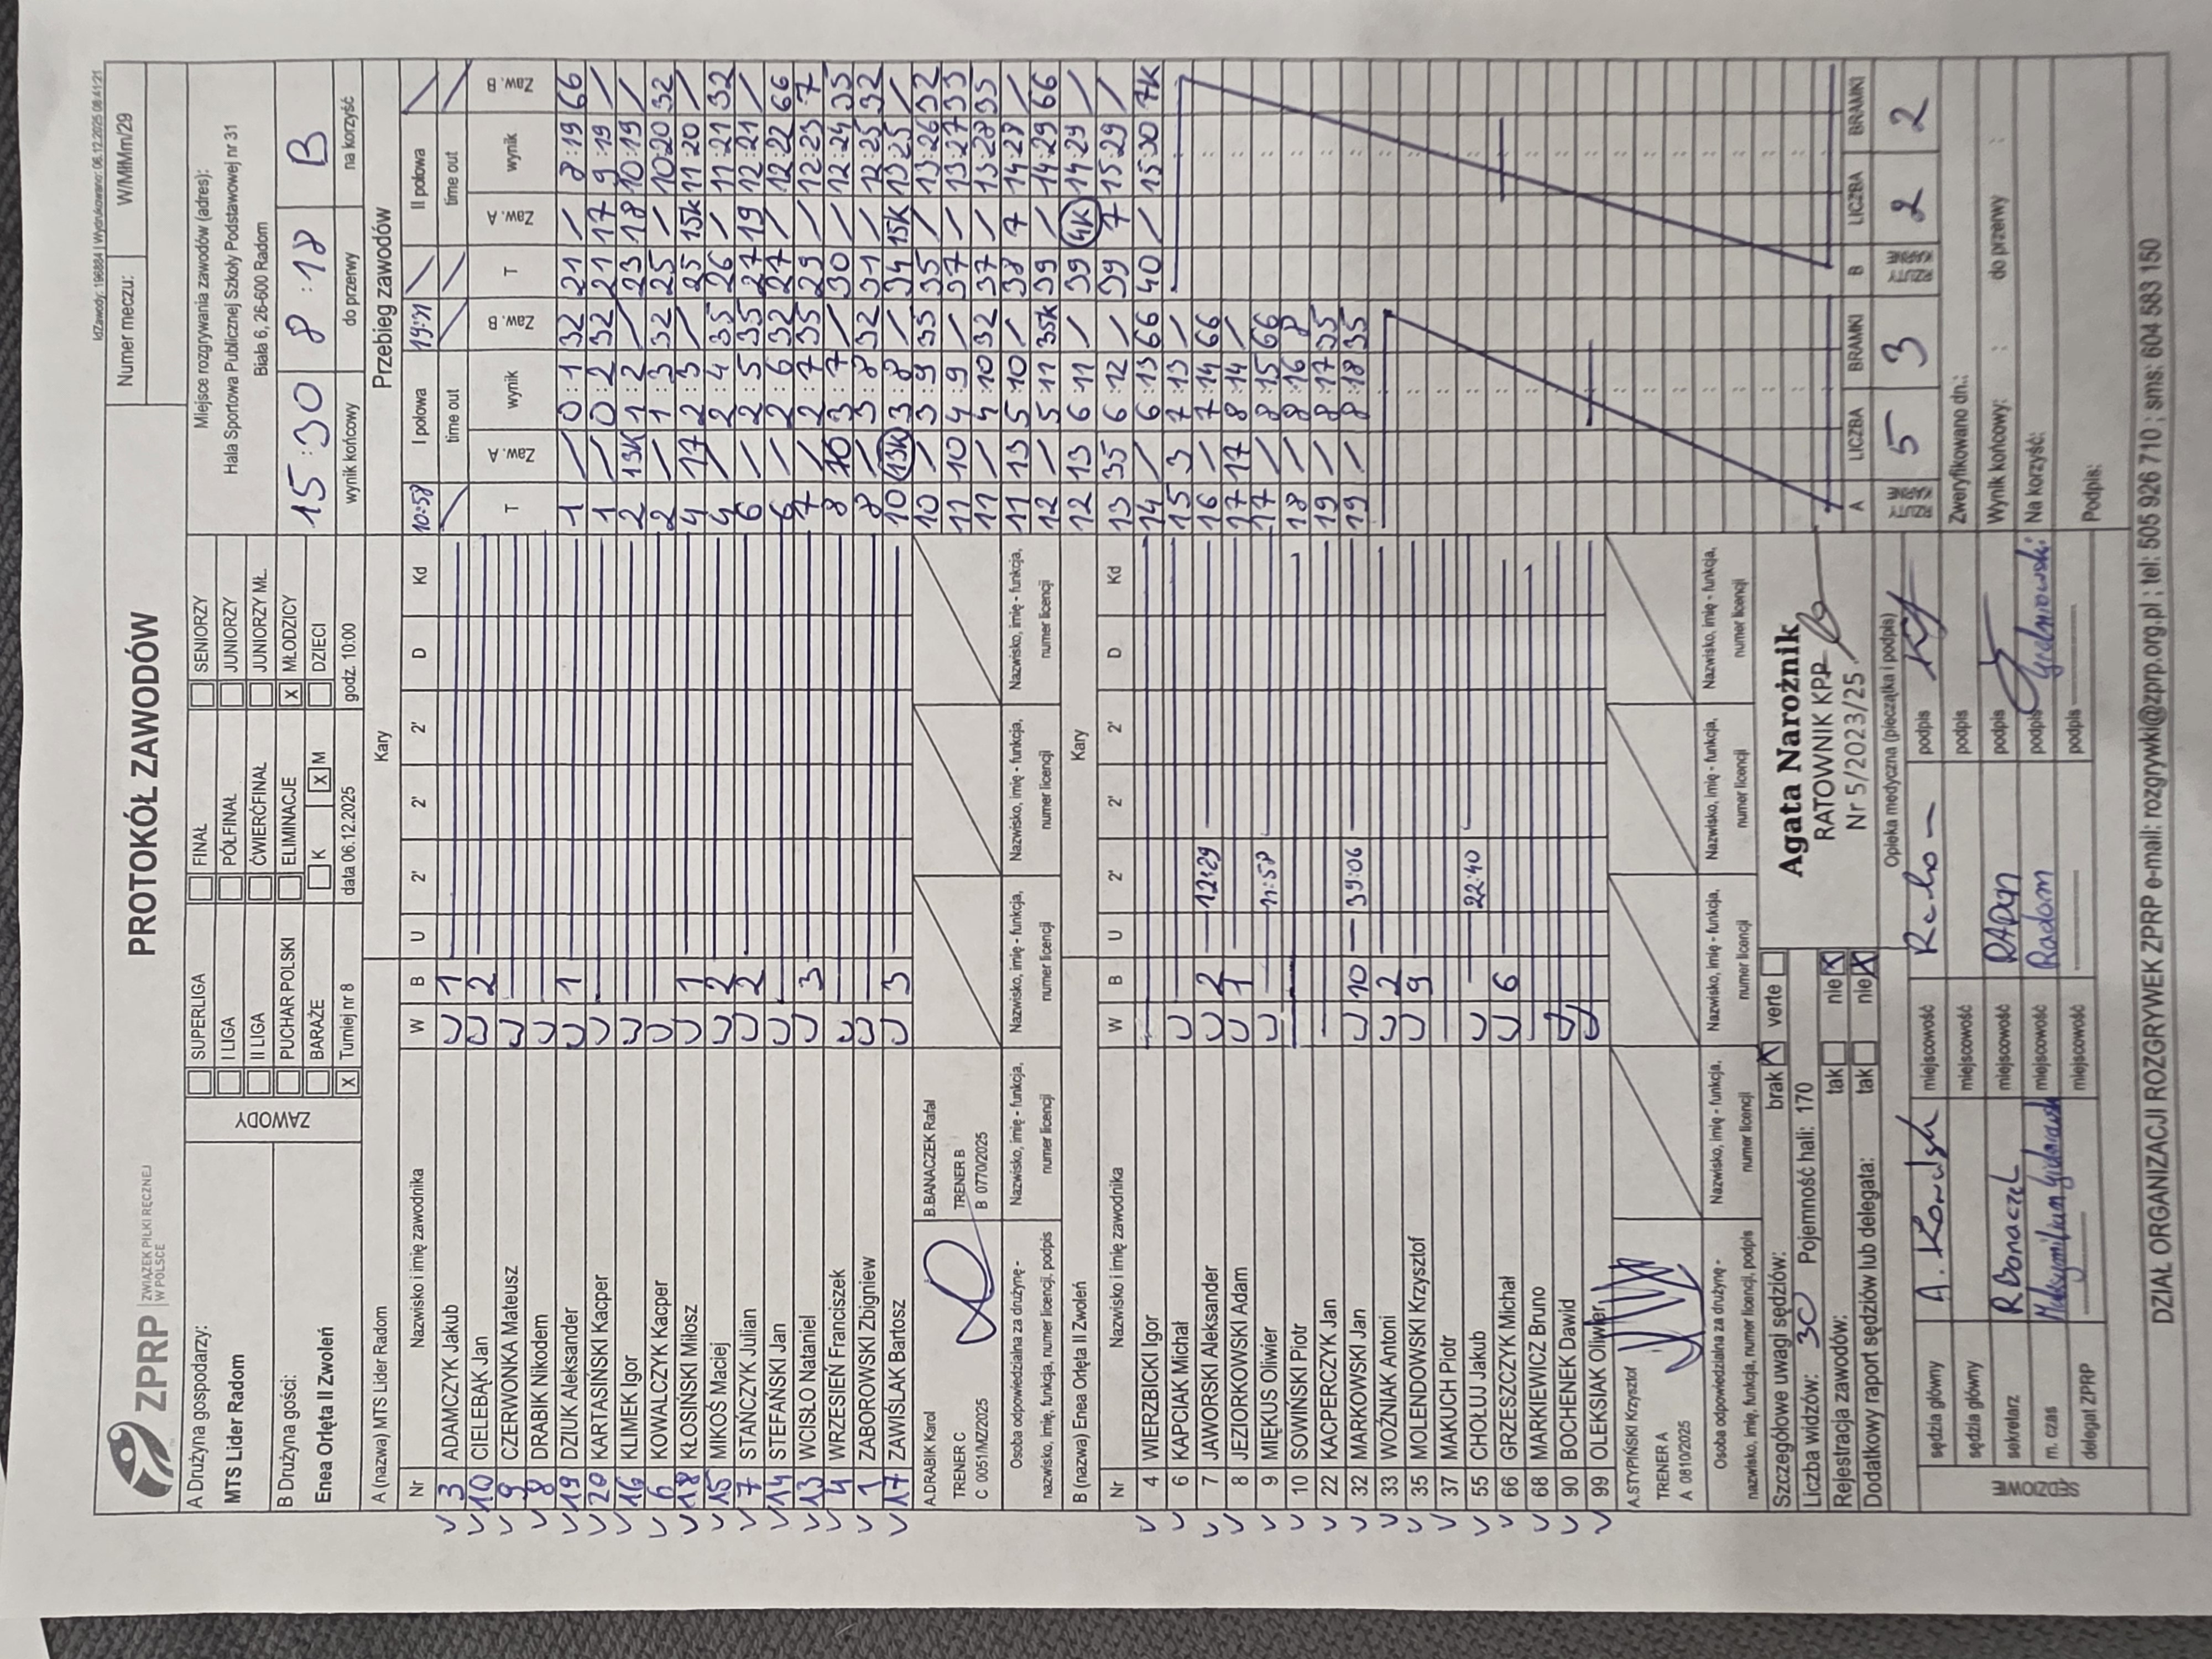 IdZawody: 196884 | Wydrukowano: 06.12.2025 08:41:21
ZPRP ZWIĄZEK PIŁKI RĘCZNEJ W POLSCE
PROTOKÓŁ ZAWODÓW
Numer meczu: W/MMm/29
A Drużyna gospodarzy:
MTS Lider Radom
B Drużyna gości:
Enea Orlęta II Zwoleń
ZAWODY
SUPERLIGA FINAŁ SENIORZY
I LIGA PÓŁFINAŁ JUNIORZY
II LIGA ĆWIERĆFINAŁ JUNIORZY MŁ.
PUCHAR POLSKI ELIMINACJE X MŁODZICY
BARAŻE K X M DZIECI
X Turniej nr 8 data 06.12.2025 godz. 10:00
Miejsce rozgrywania zawodów (adres):
Hala Sportowa Publicznej Szkoły Podstawowej nr 31
Biała 6, 26-600 Radom
15:30 8:18 B
wynik końcowy do przerwy na korzyść
A (nazwa) MTS Lider Radom Kary
Nr Nazwisko i imię zawodnika W B U 2' 2' 2' D Kd
V 3 ADAMCZYK Jakub U 1
V 10 CIELEBĄK Jan U 2
V 9 CZERWONKA Mateusz U
V 8 DRABIK Nikodem U
V 19 DZIUK Aleksander U 1
V 20 KARTASIŃSKI Kacper U
V 16 KLIMEK Igor U
V 6 KOWALCZYK Kacper U
V 18 KŁOSIŃSKI Miłosz U 1
V 15 MIKOŚ Maciej U 2
V 7 STAŃCZYK Julian U 2
V 14 STEFAŃSKI Jan U
V 13 WCISŁO Nataniel U 3
V 4 WRZESIEŃ Franciszek U
V 1 ZABOROWSKI Zbigniew U
V 17 ZAWIŚLAK Bartosz U 3
A.DRABIK Karol B.BANACZEK Rafał
TRENER C TRENER B
C 0051/MZ/2025 B 0770/2025
Osoba odpowiedzialna za drużynę - nazwisko, imię, funkcja, numer licencji, podpis
Nazwisko, imię - funkcja, numer licencji
Nazwisko, imię - funkcja, numer licencji
Nazwisko, imię - funkcja, numer licencji
Nazwisko, imię - funkcja, numer licencji
B (nazwa) Enea Orlęta II Zwoleń Kary
Nr Nazwisko i imię zawodnika W B U 2' 2' 2' D Kd
V 4 WIERZBICKI Igor
V 6 KAPCIAK Michał U
V 7 JAWORSKI Aleksander U 2 12:29
V 8 JEZIORKOWSKI Adam U 1
V 9 MIĘKUS Oliwier U 11:58
V 10 SOWIŃSKI Piotr
V 22 KACPERCZYK Jan
V 32 MARKOWSKI Jan U 10 39:06
V 33 WOŹNIAK Antoni U 2
V 35 MOLENDOWSKI Krzysztof U 9
V 37 MAKUCH Piotr
V 55 CHOŁUJ Jakub U 22:40
V 66 GRZESZCZYK Michał U 6
V 68 MARKIEWICZ Bruno
V 90 BOCHENEK Dawid U
V 99 OLEKSIAK Oliwier U
A.STYPIŃSKI Krzysztof
TRENER A
A 0810/2025
Osoba odpowiedzialna za drużynę - nazwisko, imię, funkcja, numer licencji, podpis
Nazwisko, imię - funkcja, numer licencji
Nazwisko, imię - funkcja, numer licencji
Nazwisko, imię - funkcja, numer licencji
Nazwisko, imię - funkcja, numer licencji
Przebieg zawodów
10:58 I połowa 19:21 II połowa
time out time out
T Zaw. A wynik Zaw. B T Zaw. A wynik Zaw. B
1 / 0:1 32 21 / 8:19 66
1 / 0:2 32 21 17 9:19 /
2 13K 1:2 / 23 18 10:19 /
2 / 1:3 32 25 / 10:20 32
4 17 2:3 / 25 15K 11:20 /
4 / 2:4 35 26 / 11:21 32
6 / 2:5 35 27 19 12:21 /
6 / 2:6 32 27 / 12:22 66
7 / 2:7 35 29 / 12:23 7
8 10 3:7 / 30 / 12:24 35
8 / 3:8 32 31 / 12:25 32
10 13K 3:8 / 34 15K 13:25 /
10 / 3:9 35 35 / 13:26 32
11 10 4:9 / 37 / 13:27 33
11 / 4:10 32 37 / 13:28 35
11 13 5:10 / 38 7 14:28 /
12 / 5:11 35K 39 / 14:29 66
12 13 6:11 / 39 4K 14:29 /
13 35 6:12 / 39 7 15:29 /
14 / 6:13 66 40 / 15:30 7K
15 3 7:13 /
16 / 7:14 66
17 17 8:14 /
17 / 8:15 66
18 / 8:16 8
19 / 8:17 35
19 / 8:18 35
A LICZBA BRAMKI B LICZBA BRAMKI
5 3 2 2
Szczegółowe uwagi sędziów: brak X verte
Liczba widzów: 30 Pojemność hali: 170
Rejestracja zawodów: tak nie X
Dodatkowy raport sędziów lub delegata: tak nie X
Agata Narożnik
RATOWNIK KPP
Nr 5/2023/25
Opieka medyczna (pieczątka i podpis)
Zweryfikowano dn.:
Wynik końcowy: : do przerwy :
Na korzyść:
Podpis:
SĘDZIOWIE
sędzia główny miejscowość podpis
sędzia główny miejscowość podpis
sekretarz R Banaczek miejscowość podpis
m. czas miejscowość Radom podpis
delegat ZPRP miejscowość podpis
DZIAŁ ORGANIZACJI ROZGRYWEK ZPRP e-mail: rozgrywki@zprp.org.pl ; tel: 505 926 710 ; sms: 604 583 150